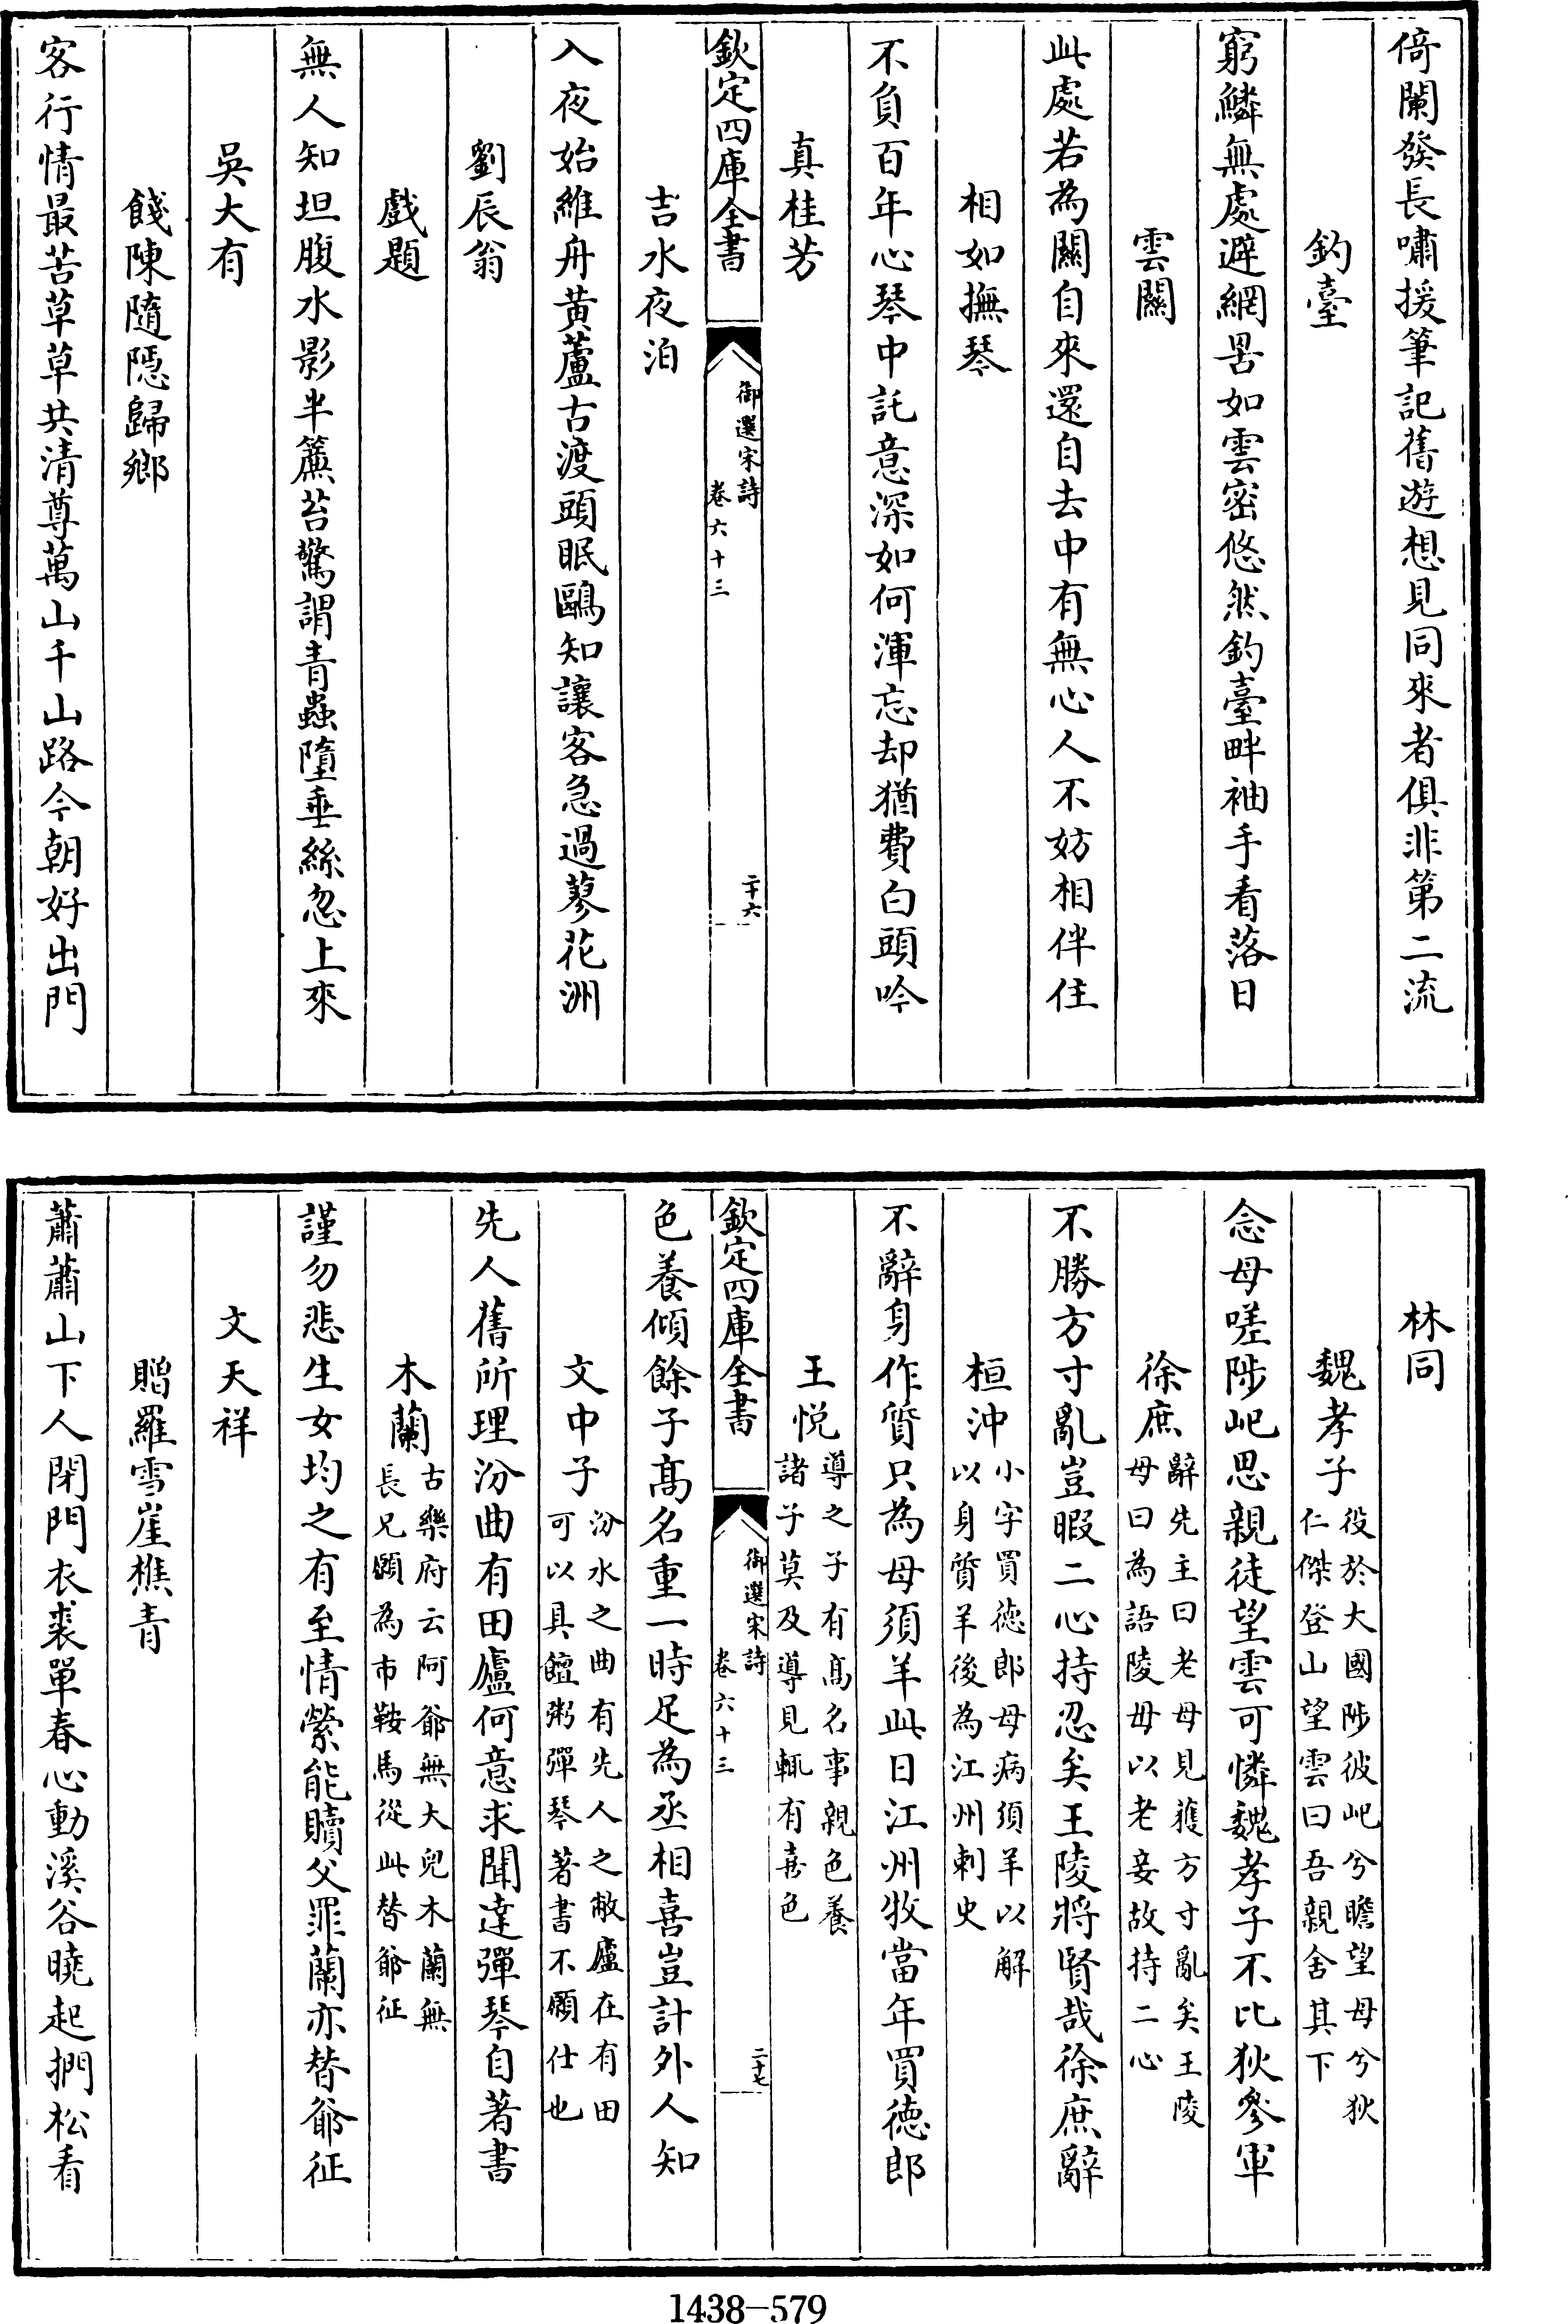 倚闌發長嘯援筆記舊遊想見同來者俱非第二流
釣臺
窮鱗無處避網罟如雲密悠然釣臺畔袖手看落日
雲關
此處若為關自來還自去中有無心人不妨相伴住
相如撫琴
不負百年心琴中託意深如何渾忘却猶費白頭吟
真桂芳
欽定四庫全書
御選宋詩
卷六十三
二十六
吉水夜泊
入夜始維舟黃蘆古渡頭眠鷗知讓客急過蓼花洲
劉辰翁
戲題
無人知坦腹水影半簾苔驚謂青蟲墮垂絲忽上來
吳大有
餞陳隨隱歸鄉
客行情最苦草草共清尊萬山千山路今朝好出門
林同
魏孝子
役於大國陟彼屺兮瞻望母兮狄
仁傑登山望雲曰吾親舍其下
念母嗟陟屺思親徒望雲可憐魏孝子不比狄參軍
徐庶
辭先主曰老母見獲方寸亂矣王陵
母曰為語陵毋以老妾故持二心
不勝方寸亂豈暇二心持忍矣王陵將賢哉徐庶辭
桓沖
小字買德郎母病須羊以解
以身質羊後為江州刺史
不辭身作質只為母須羊此日江州牧當年買德郎
王悅
導之子有高名事親色養
諸子莫及導見輒有喜色
欽定四庫全書
御選宋詩
卷六十三
二十七
色養傾餘子高名重一時足為丞相喜豈計外人知
文中子
汾水之曲有先人之敝廬在有田
可以具饘粥彈琴著書不願仕也
先人舊所理汾曲有田廬何意求聞達彈琴自著書
木蘭
古樂府云阿爺無大兒木蘭無
長兄願為市鞍馬從此替爺征
謹勿悲生女均之有至情縈能贖父罪蘭亦替爺征
文天祥
贈羅雪崖樵青
蕭蕭山下人閉門衣裘單春心動溪谷曉起捫松看
1438-579